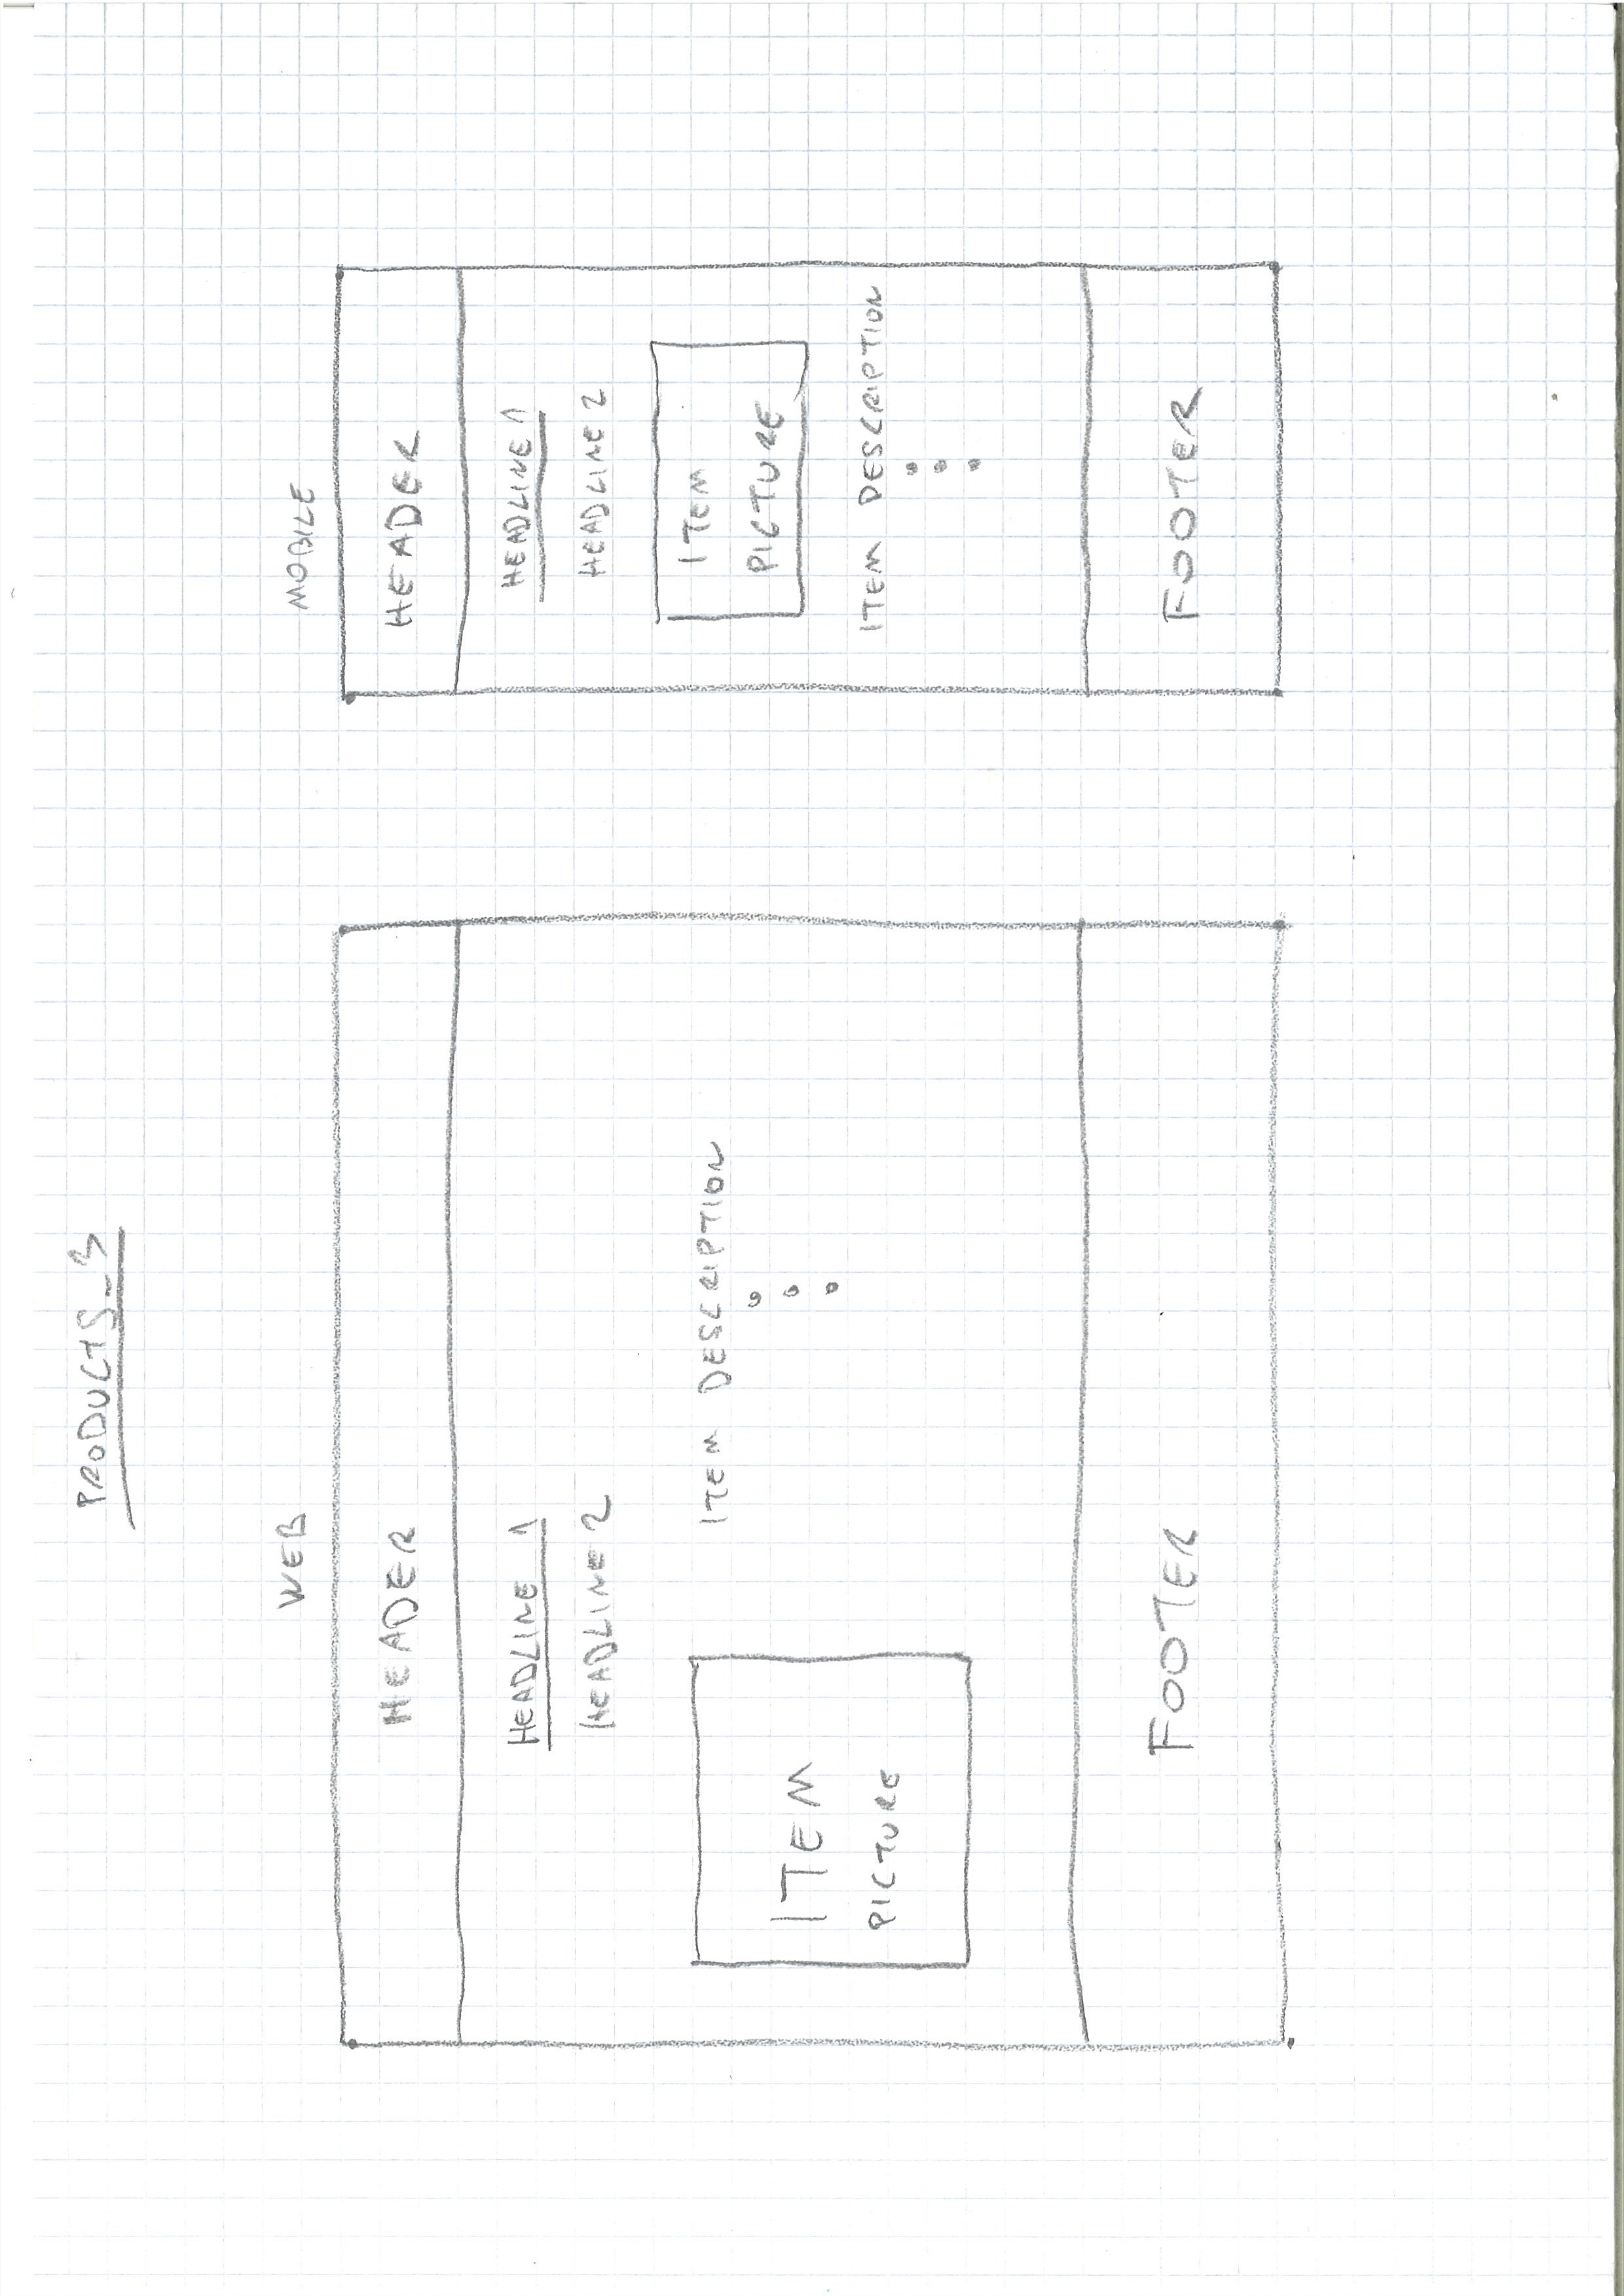 PRODUCTS_3
WEB
HEADER
HEADLINE 1
HEADLINE 2
ITEM
PICTURE
ITEM DESCRIPTION
FOOTER
MOBILE
HEADER
HEADLINE 1
HEADLINE 2
ITEM
PICTURE
ITEM DESCRIPTION
FOOTER